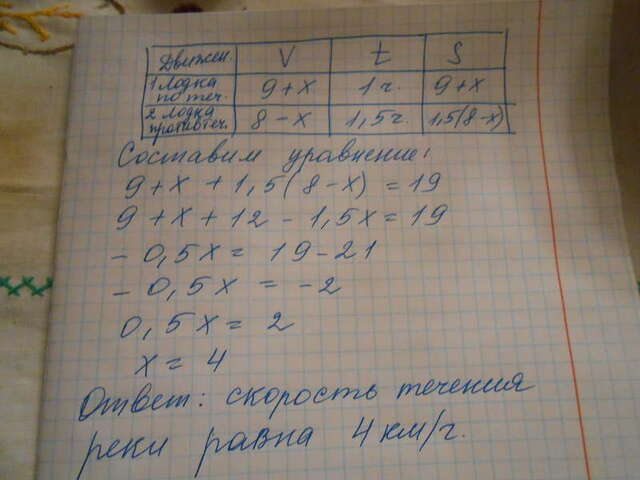 Движен. V t S
1 лодка по теч. 9+x 1 ч. 9+x
2 лодка против теч. 8-x 1,5 ч. 1,5(8-x)
Составим уравнение:
9+x+1,5(8-x)=19
9+x+12-1,5x=19
-0,5x=19-21
-0,5x=-2
0,5x=2
x=4
Ответ: скорость течения
реки равна 4 км/г.